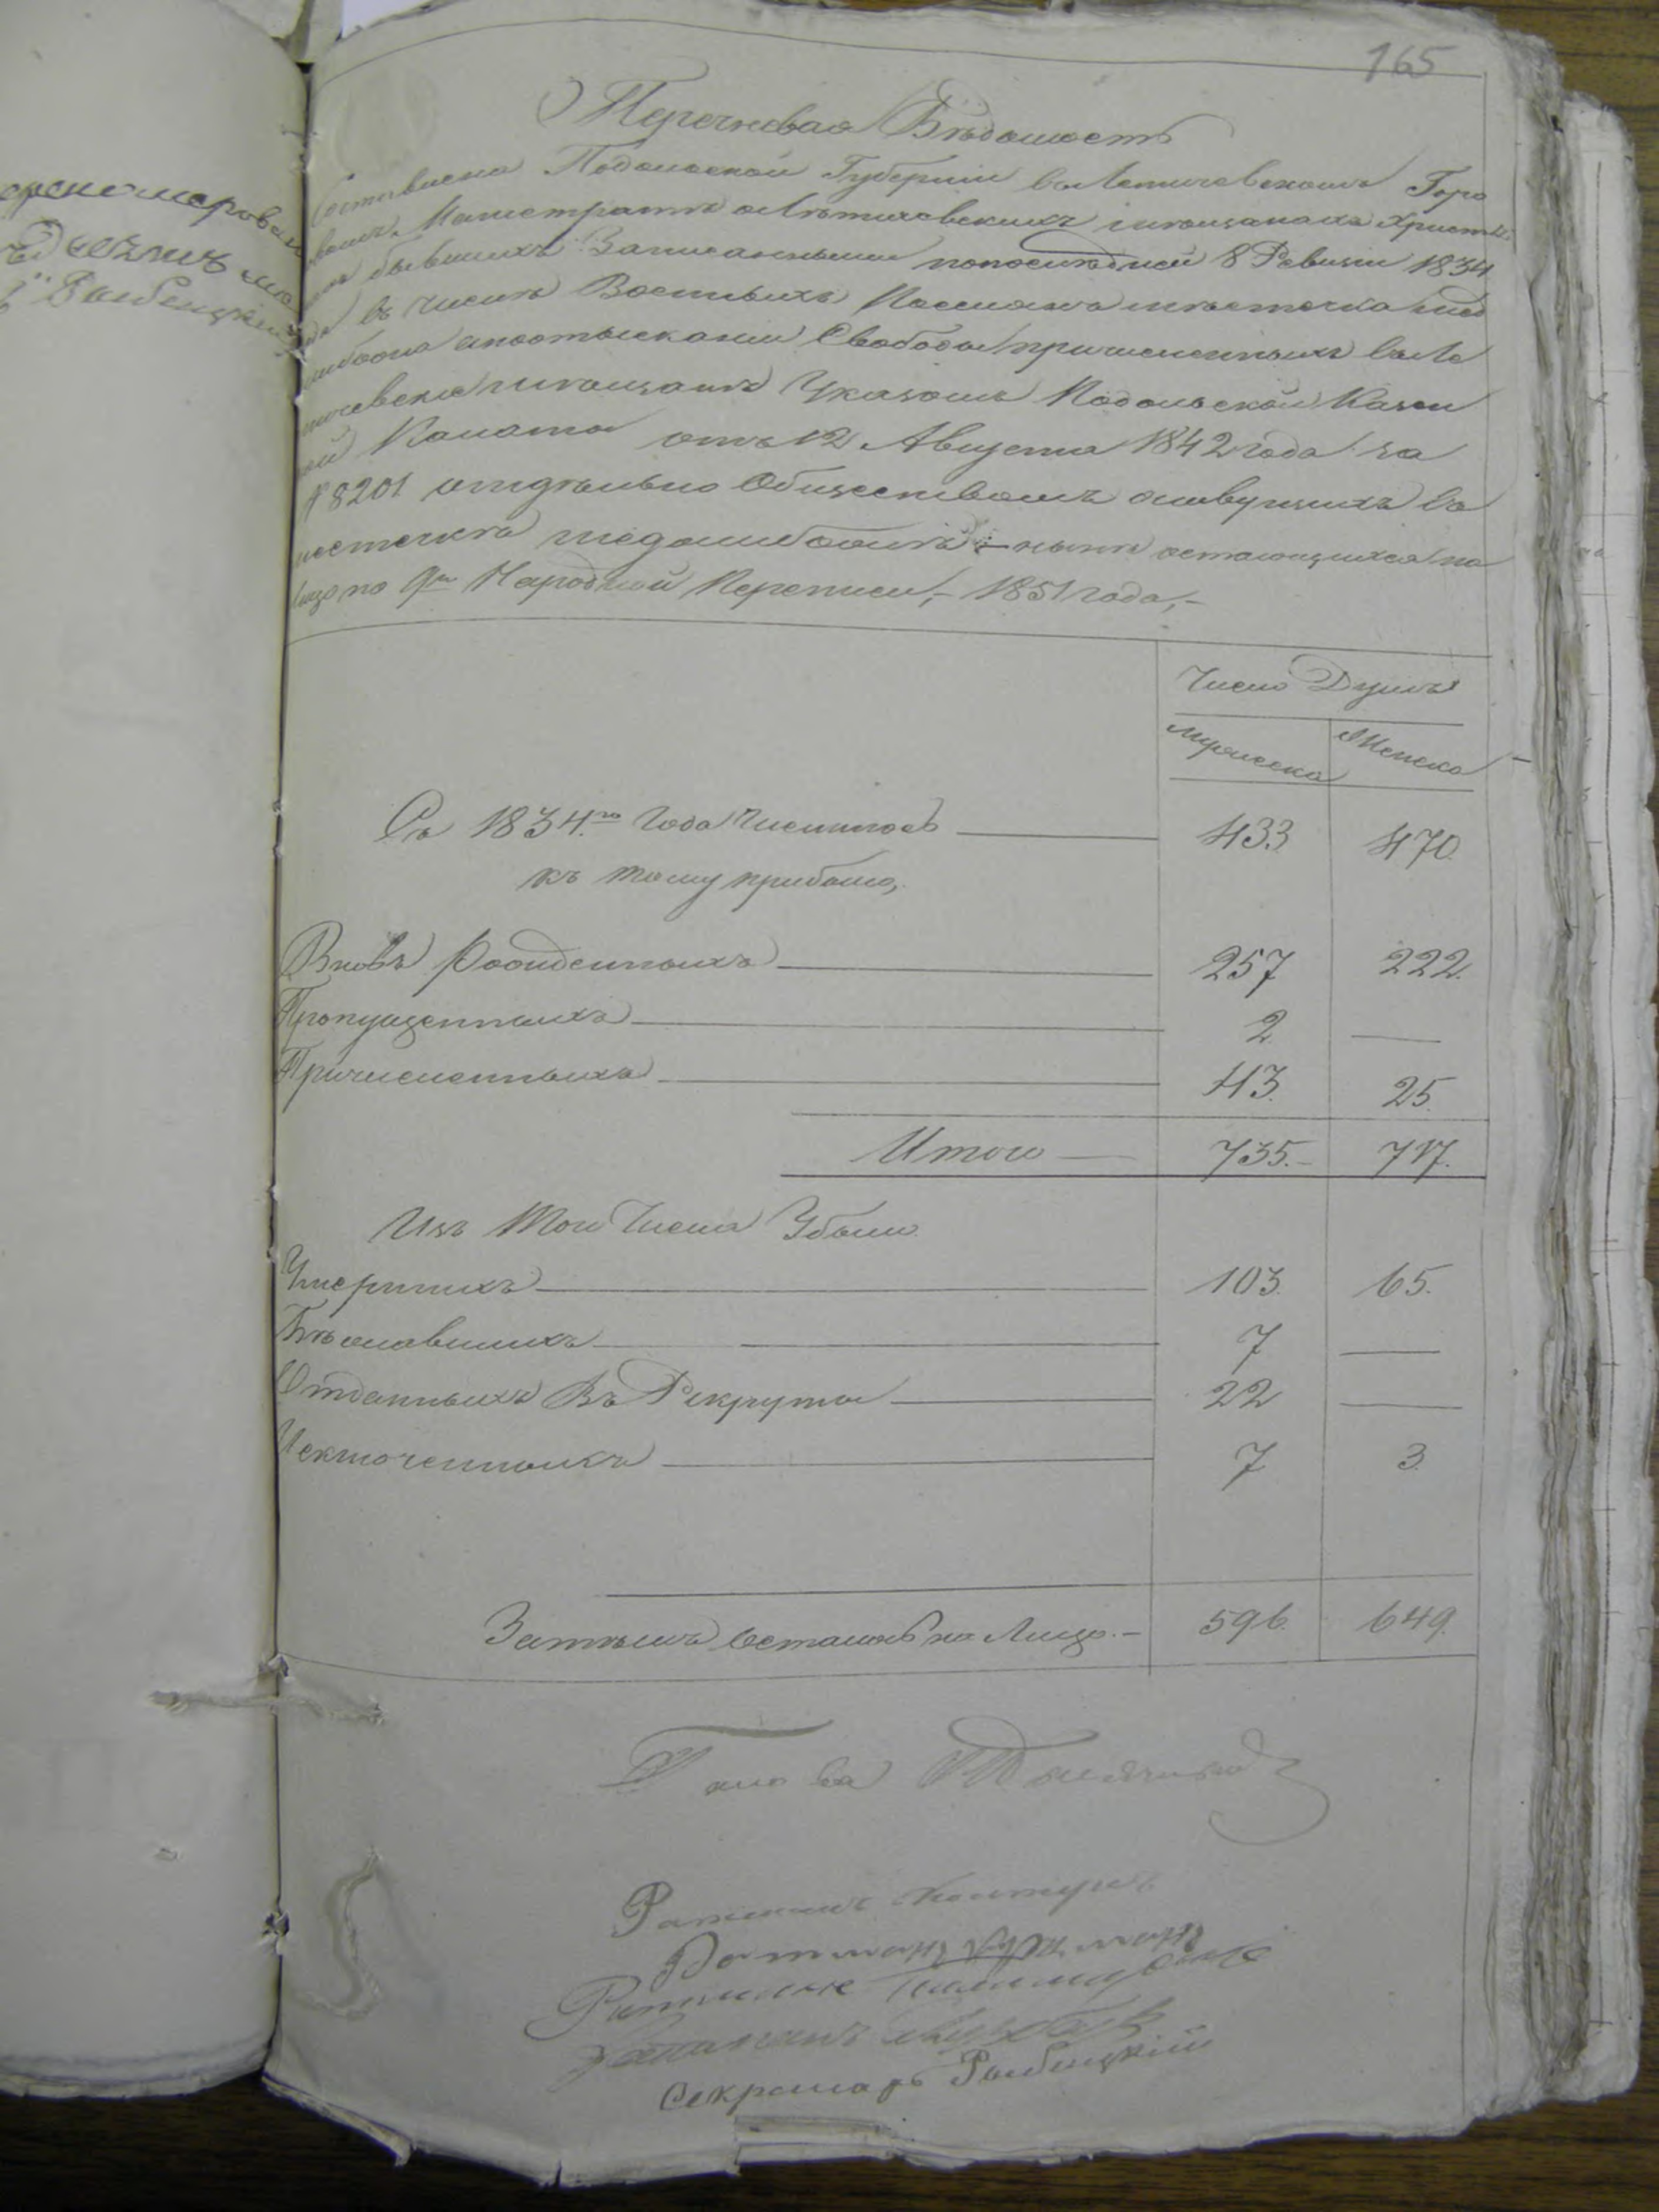 165
Перечневая Вѣдомость
Составлена Подольской Губерніи въ Летичевскомъ Горо
Магистратѣ о Лѣтичевскихъ мѣщанахъ Христі
бывшихъ Записанными по послѣдней 8 Ревизіи 1834
въ числѣ Вѣчныхъ мѣстечка Мед
по отысканіи Свободы причисленныхъ въ Ле
мѣщане Указомъ Подольской Казен
Палаты отъ 12 Августа 1842 года за
№ 8201 отдѣльно Обществомъ живущихъ въ
местечкѣ Меджибожѣ – нынѣ остающихся на
лицо по 9й Народной Переписи, – 1851 года, –
Число Душъ
мужеска
Женска
Съ 1834.го Года Числилось 433 470.
къ тому прибыло,
Вновь Рожденныхъ 257 222.
Пропущенныхъ 2 —
Причисленныхъ 43. 25.
Итого — 735. – 717.
Изъ Того Числа Убыли
Умершихъ 103. 65.
Бѣжавшихъ 7 —
Отданныхъ Въ Рекруты 22 —
Исключенныхъ 7 3.
Затѣмъ Осталось на Лицо. – 596. 649.
Голова
Ратманъ
Ратманъ
Ратманъ
Секретарь